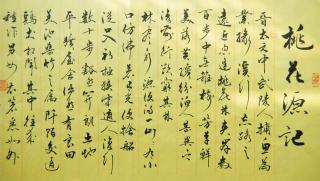 桃花源记
晋太元中武陵人捕鱼为
業缘溪行忘路之
遠近忽逢桃花林夹岸数
百步中无雜樹芳草鲜
美落英缤纷渔人甚異之
復前行欲窮其林
林尽水源便得一山山有小
口仿佛若有光便捨船
從口入初極狭才通人復行
數十步豁然开朗土地
平曠屋舍俨然有良田
美池桑竹之属阡陌交通
鸡犬相闻其中往来
種作男女衣著悉如外